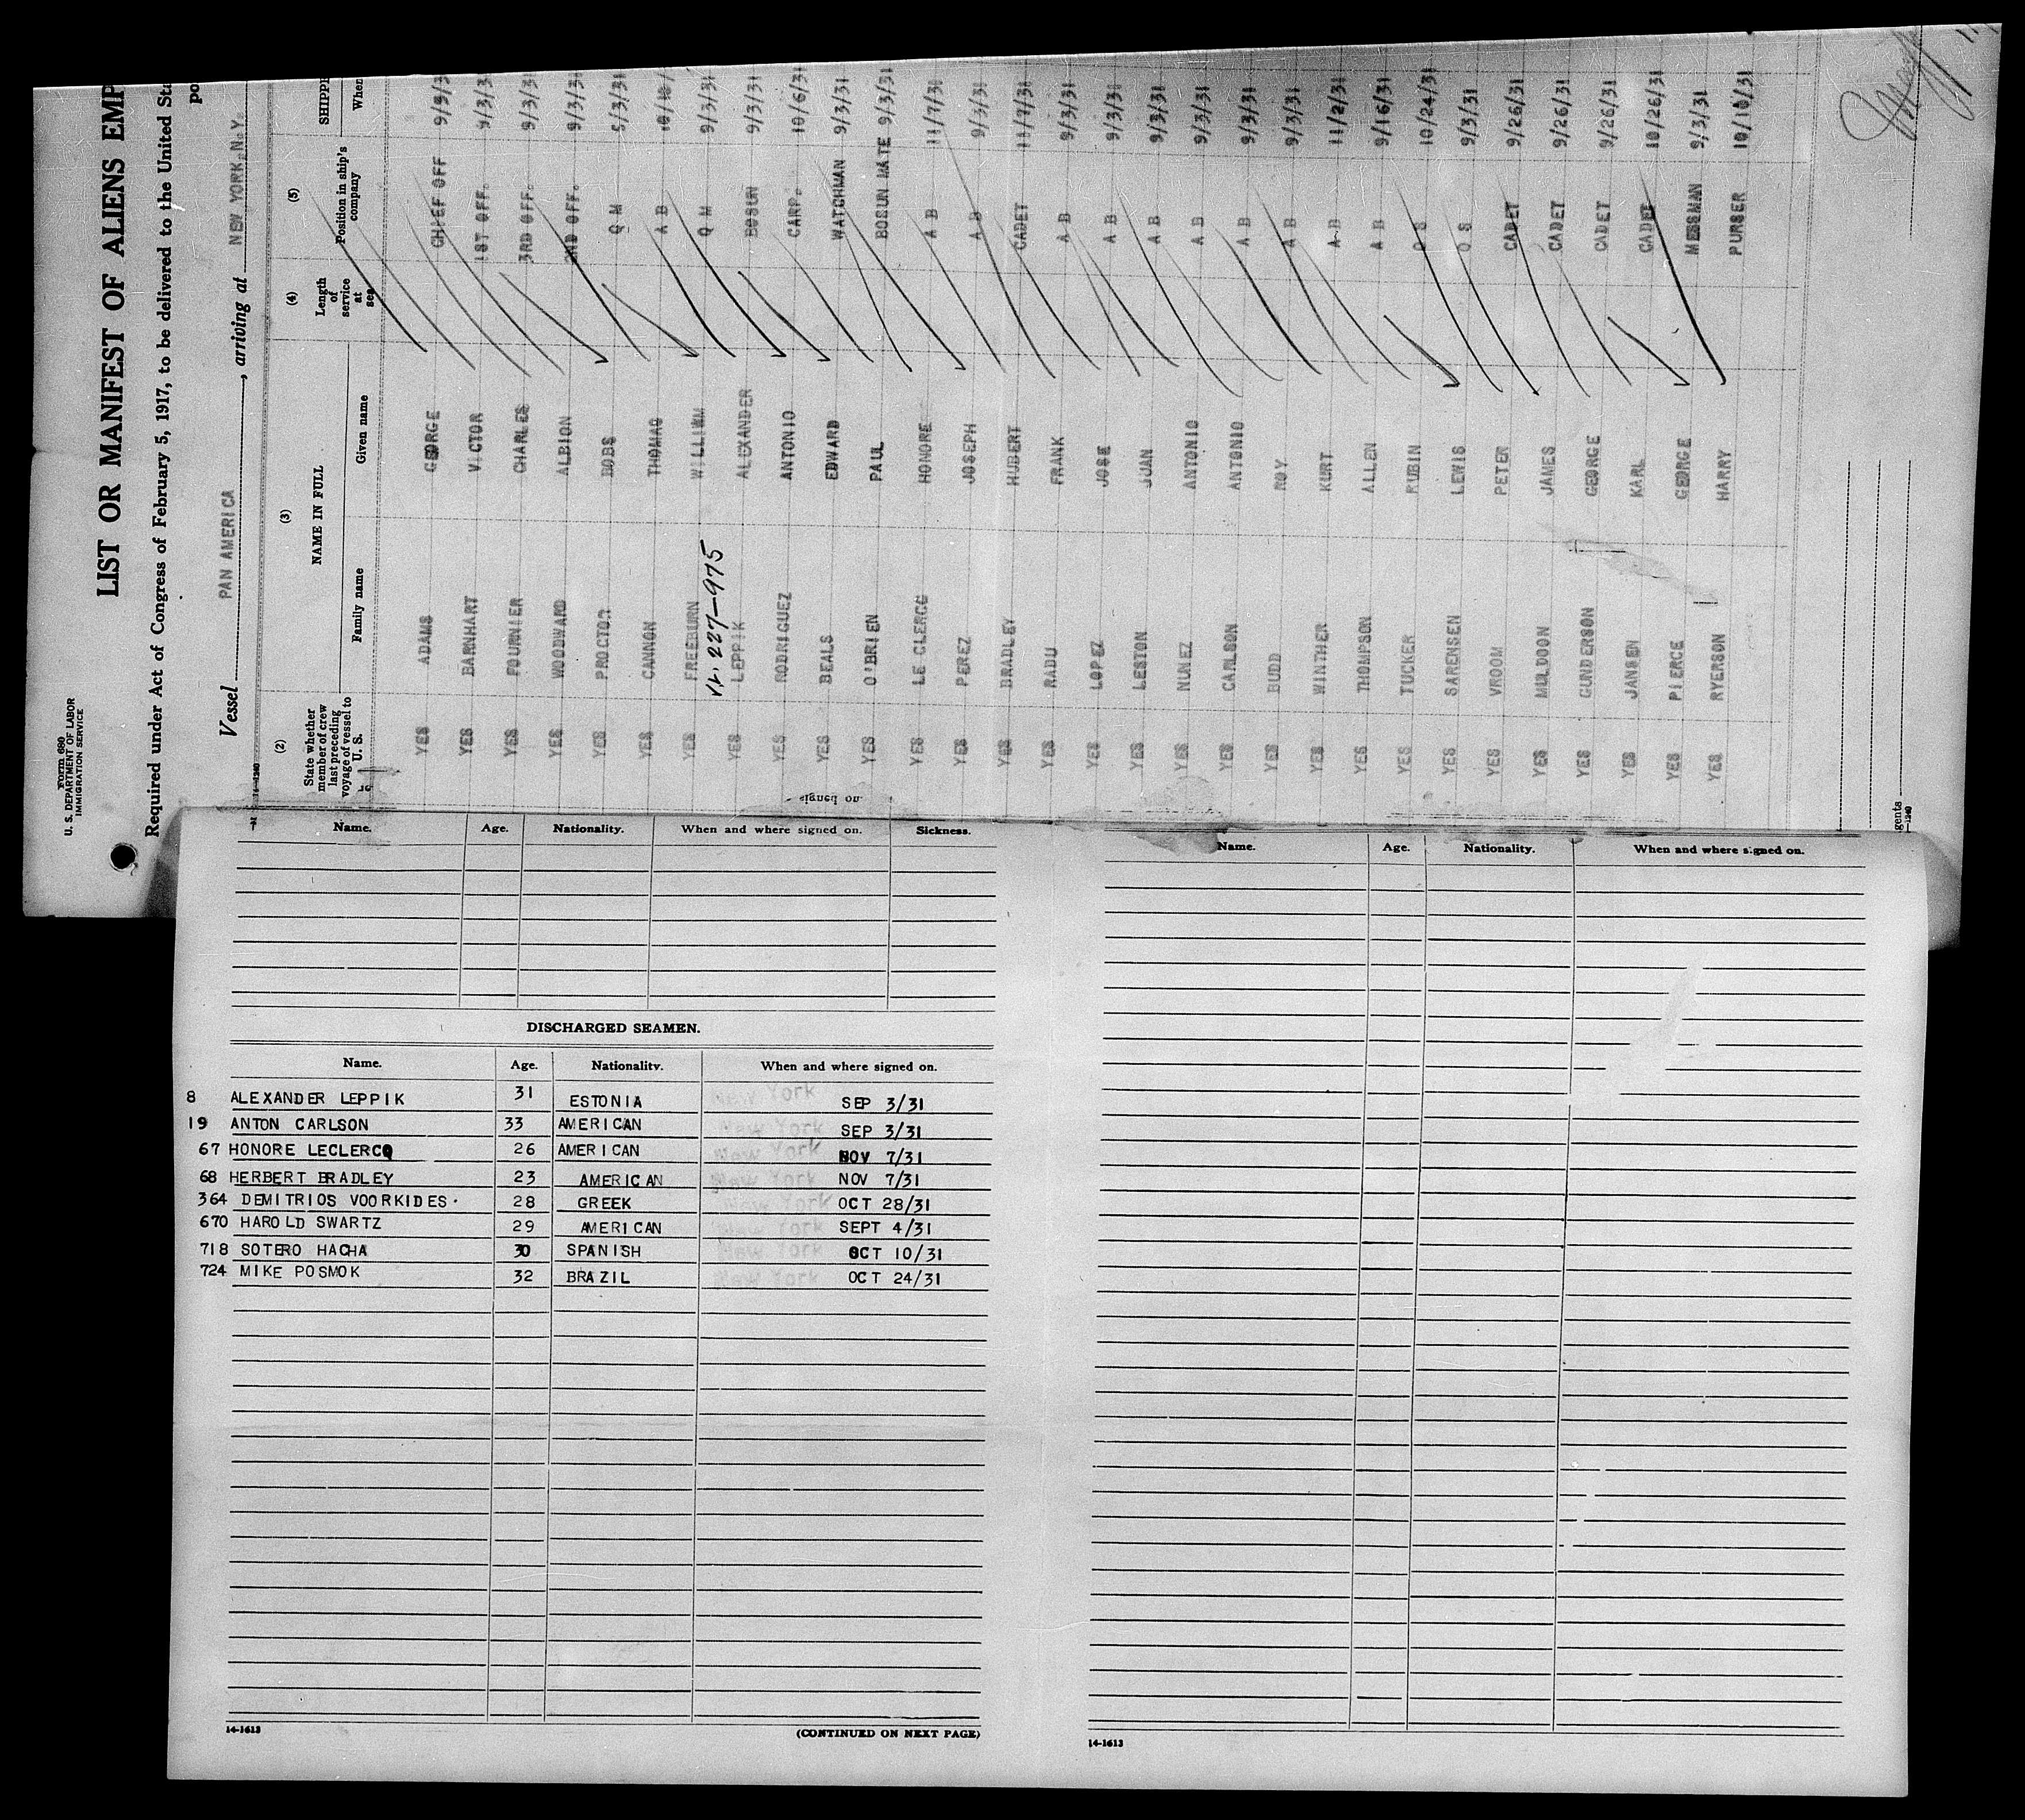 Form 680
U. S. DEPARTMENT OF LABOR
IMMIGRATION SERVICE
LIST OR MANIFEST OF ALIENS EMP
Required under Act of Congress of February 5, 1917, to be delivered to the United Sta
po
Vessel PAN AMERICA, arriving at NEW YORK, N.Y.
14-1240
(2) (3) (4) (5)
State whether member of crew last preceding voyage of vessel to U. S.
NAME IN FULL
Family name Given name
Length of service at sea
Position in ship's company
SHIPPE
When
YES ADAMS GEORGE CHIEF OFF 9/3/3
YES BARNHART VICTOR 1ST OFF. 9/3/31
YES FOURNIER CHARLES 3RD OFF. 9/3/31
YES WOODWARD ALBION 2ND OFF. 9/3/31
YES PROCTOR BOBS Q M 9/3/31
YES CANNON THOMAS A B
YES FREEBURN WILLIAM Q M 9/3/31
227-975
YES LEPPIK ALEXANDER BOSUN 9/3/31
YES RODRIGUEZ ANTONIO CARP. 10/6/31
YES BEALS EDWARD WATCHMAN 9/3/31
YES O'BRIEN PAUL BOSUN MATE 9/3/31
YES LE CLERCG HONORE A B 11/7/31
YES PEREZ JOSEPH A B 9/3/31
YES BRADLEY HUBERT CADET 11/7/31
YES RADU FRANK A B 9/3/31
YES LOPEZ JOSE A B 9/3/31
YES LESTON JUAN A B 9/3/31
YES NUNEZ ANTONIO A B 9/3/31
YES CARLSON ANTONIO A B 9/3/31
YES BUDD ROY A B 9/3/31
YES WINTHER KURT A B 11/2/31
YES THOMPSON ALLEN A B 9/16/31
YES TUCKER RUBIN O S 10/24/31
YES SARENSEN LEWIS O S 9/3/31
YES VROOM PETER CADET 9/26/31
YES MULDOON JAMES CADET 9/26/31
YES GUNDERSON GEORGE CADET 9/26/31
YES JANSEN KARL CADET 10/26/31
YES PIERCE GEORGE MESSMAN 9/3/31
YES RYERSON HARRY PURSER 10/10/31
gents
—1240
signed on.
Name. Age. Nationality. When and where signed on. Sickness.
DISCHARGED SEAMEN.
Name. Age. Nationality. When and where signed on.
8 ALEXANDER LEPPIK 31 ESTONIA New York SEP 3/31
19 ANTON CARLSON 33 AMERICAN New York SEP 3/31
67 HONORE LECLERCQ 26 AMERICAN New York NOV 7/31
68 HERBERT BRADLEY 23 AMERICAN New York NOV 7/31
364 DEMITRIOS VOORKIDES. 28 GREEK New York OCT 28/31
670 HAROLD SWARTZ 29 AMERICAN New York SEPT 4/31
718 SOTERO HACHA 30 SPANISH New York OCT 10/31
724 MIKE POSMOK 32 BRAZIL New York OCT 24/31
14-1613
(CONTINUED ON NEXT PAGE)
Name. Age. Nationality. When and where signed on.
14-1613